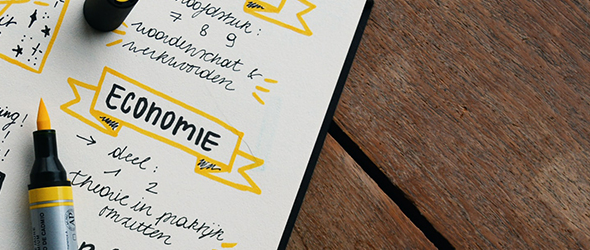 hoofdstuk:
7 8 9
woordenschat &
werkwoorden
it
ing!
ECONOMIE
→ deel:
1 2
theorie in praktijk
omzetten